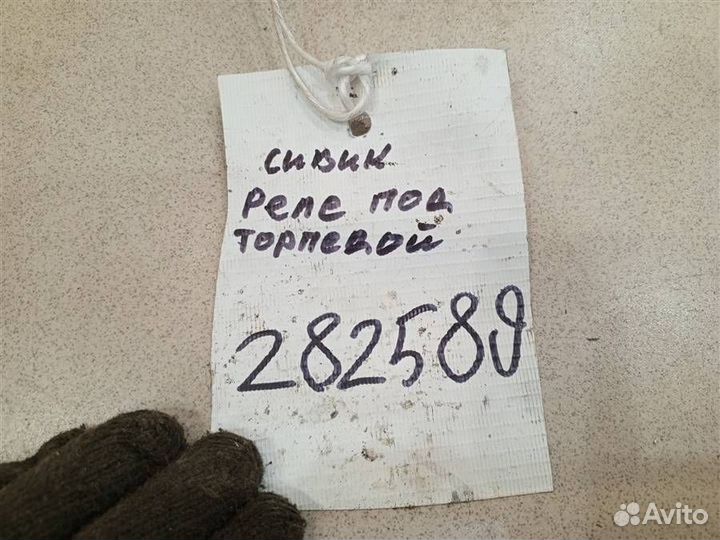 сивик
Реле под
торпедой
282589
Avito